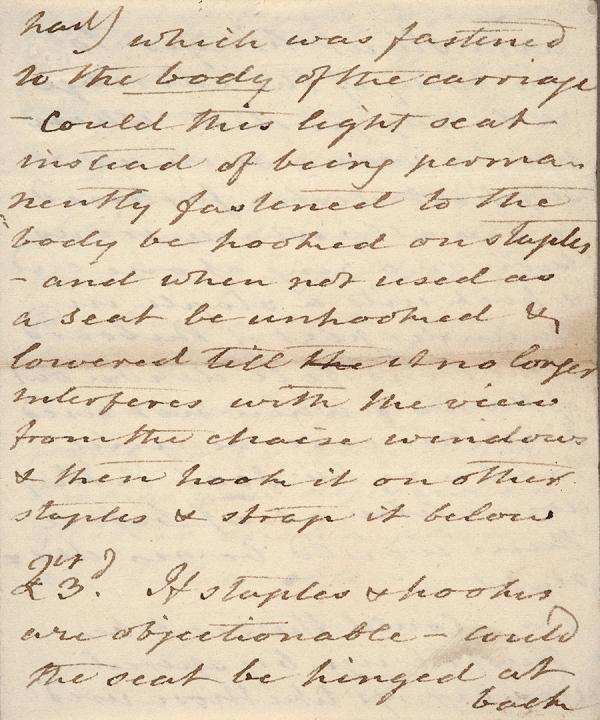 half which was fastened
to the body of the carriage
- Could this light seat
instead of being perma
nently fastened to the
body be hooked on staples
- and when not used as
a seat be unhooked &
lowered till the it no longer
interferes with the view
from the chaise windows
& then hook it on other
staples & strap it below
Qry
23. If staples & hooks
are objectionable - could
the seat be hinged at
back